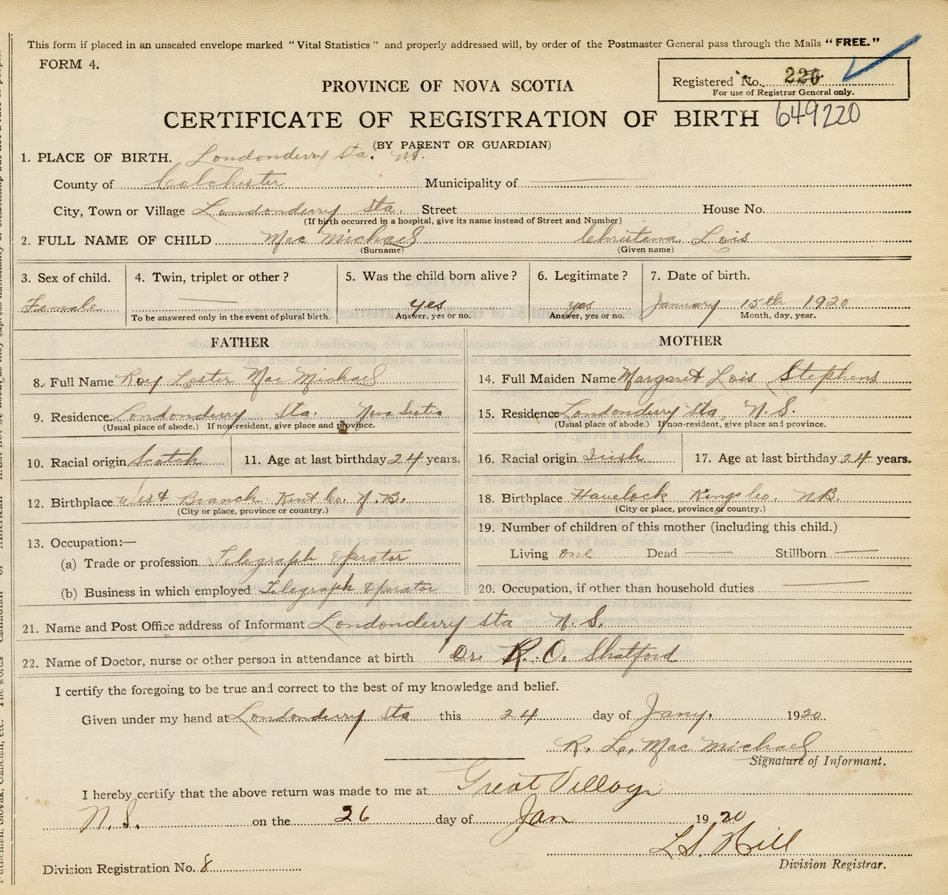 This form if placed in an unsealed envelope marked "Vital Statistics" and properly addressed will, by order of the Postmaster General pass through the Mails "FREE."
FORM 4.
Registered No. 220
For use of Registrar General only.
PROVINCE OF NOVA SCOTIA
CERTIFICATE OF REGISTRATION OF BIRTH 649220
(BY PARENT OR GUARDIAN)
1. PLACE OF BIRTH. Londonderry Sta. N.S.
County of Colchester Municipality of
City, Town or Village Londonderry Sta. Street House No.
(If birth occurred in a hospital, give its name instead of Street and Number)
2. FULL NAME OF CHILD Mac Michael Christana Lois
(Surname) (Given name)
3. Sex of child. 4. Twin, triplet or other? 5. Was the child born alive? 6. Legitimate? 7. Date of birth.
Female yes yes January 15th 1920
To be answered only in the event of plural birth. Answer, yes or no. Answer, yes or no. Month, day, year.
FATHER MOTHER
8. Full Name Roy Lester Mac Michael 14. Full Maiden Name Margaret Lois Stephens
9. Residence Londonderry Sta. Nova Scotia 15. Residence Londonderry Sta N.S.
(Usual place of abode.) If non-resident, give place and province. (Usual place of abode.) If non-resident, give place and province.
10. Racial origin Scotch 11. Age at last birthday 24 years. 16. Racial origin Irish 17. Age at last birthday 24 years.
12. Birthplace West Branch Kent Co. N.B. 18. Birthplace Havelock Kings Co. N.B.
(City or place, province or country.) (City or place, province or country.)
13. Occupation:— 19. Number of children of this mother (including this child.)
(a) Trade or profession Telegraph Operator Living one Dead Stillborn
(b) Business in which employed Telegraph Operator 20. Occupation, if other than household duties
21. Name and Post Office address of Informant Londonderry Sta N.S.
22. Name of Doctor, nurse or other person in attendance at birth Dr. R. O. Shatford
I certify the foregoing to be true and correct to the best of my knowledge and belief.
Given under my hand at Londonderry Sta this 24 day of Jany. 1920.
R. L. Mac Michael
Signature of Informant.
I hereby certify that the above return was made to me at Great Village
N.S. on the 26 day of Jan 1920
L S Hill
Division Registration No. 8 Division Registrar.